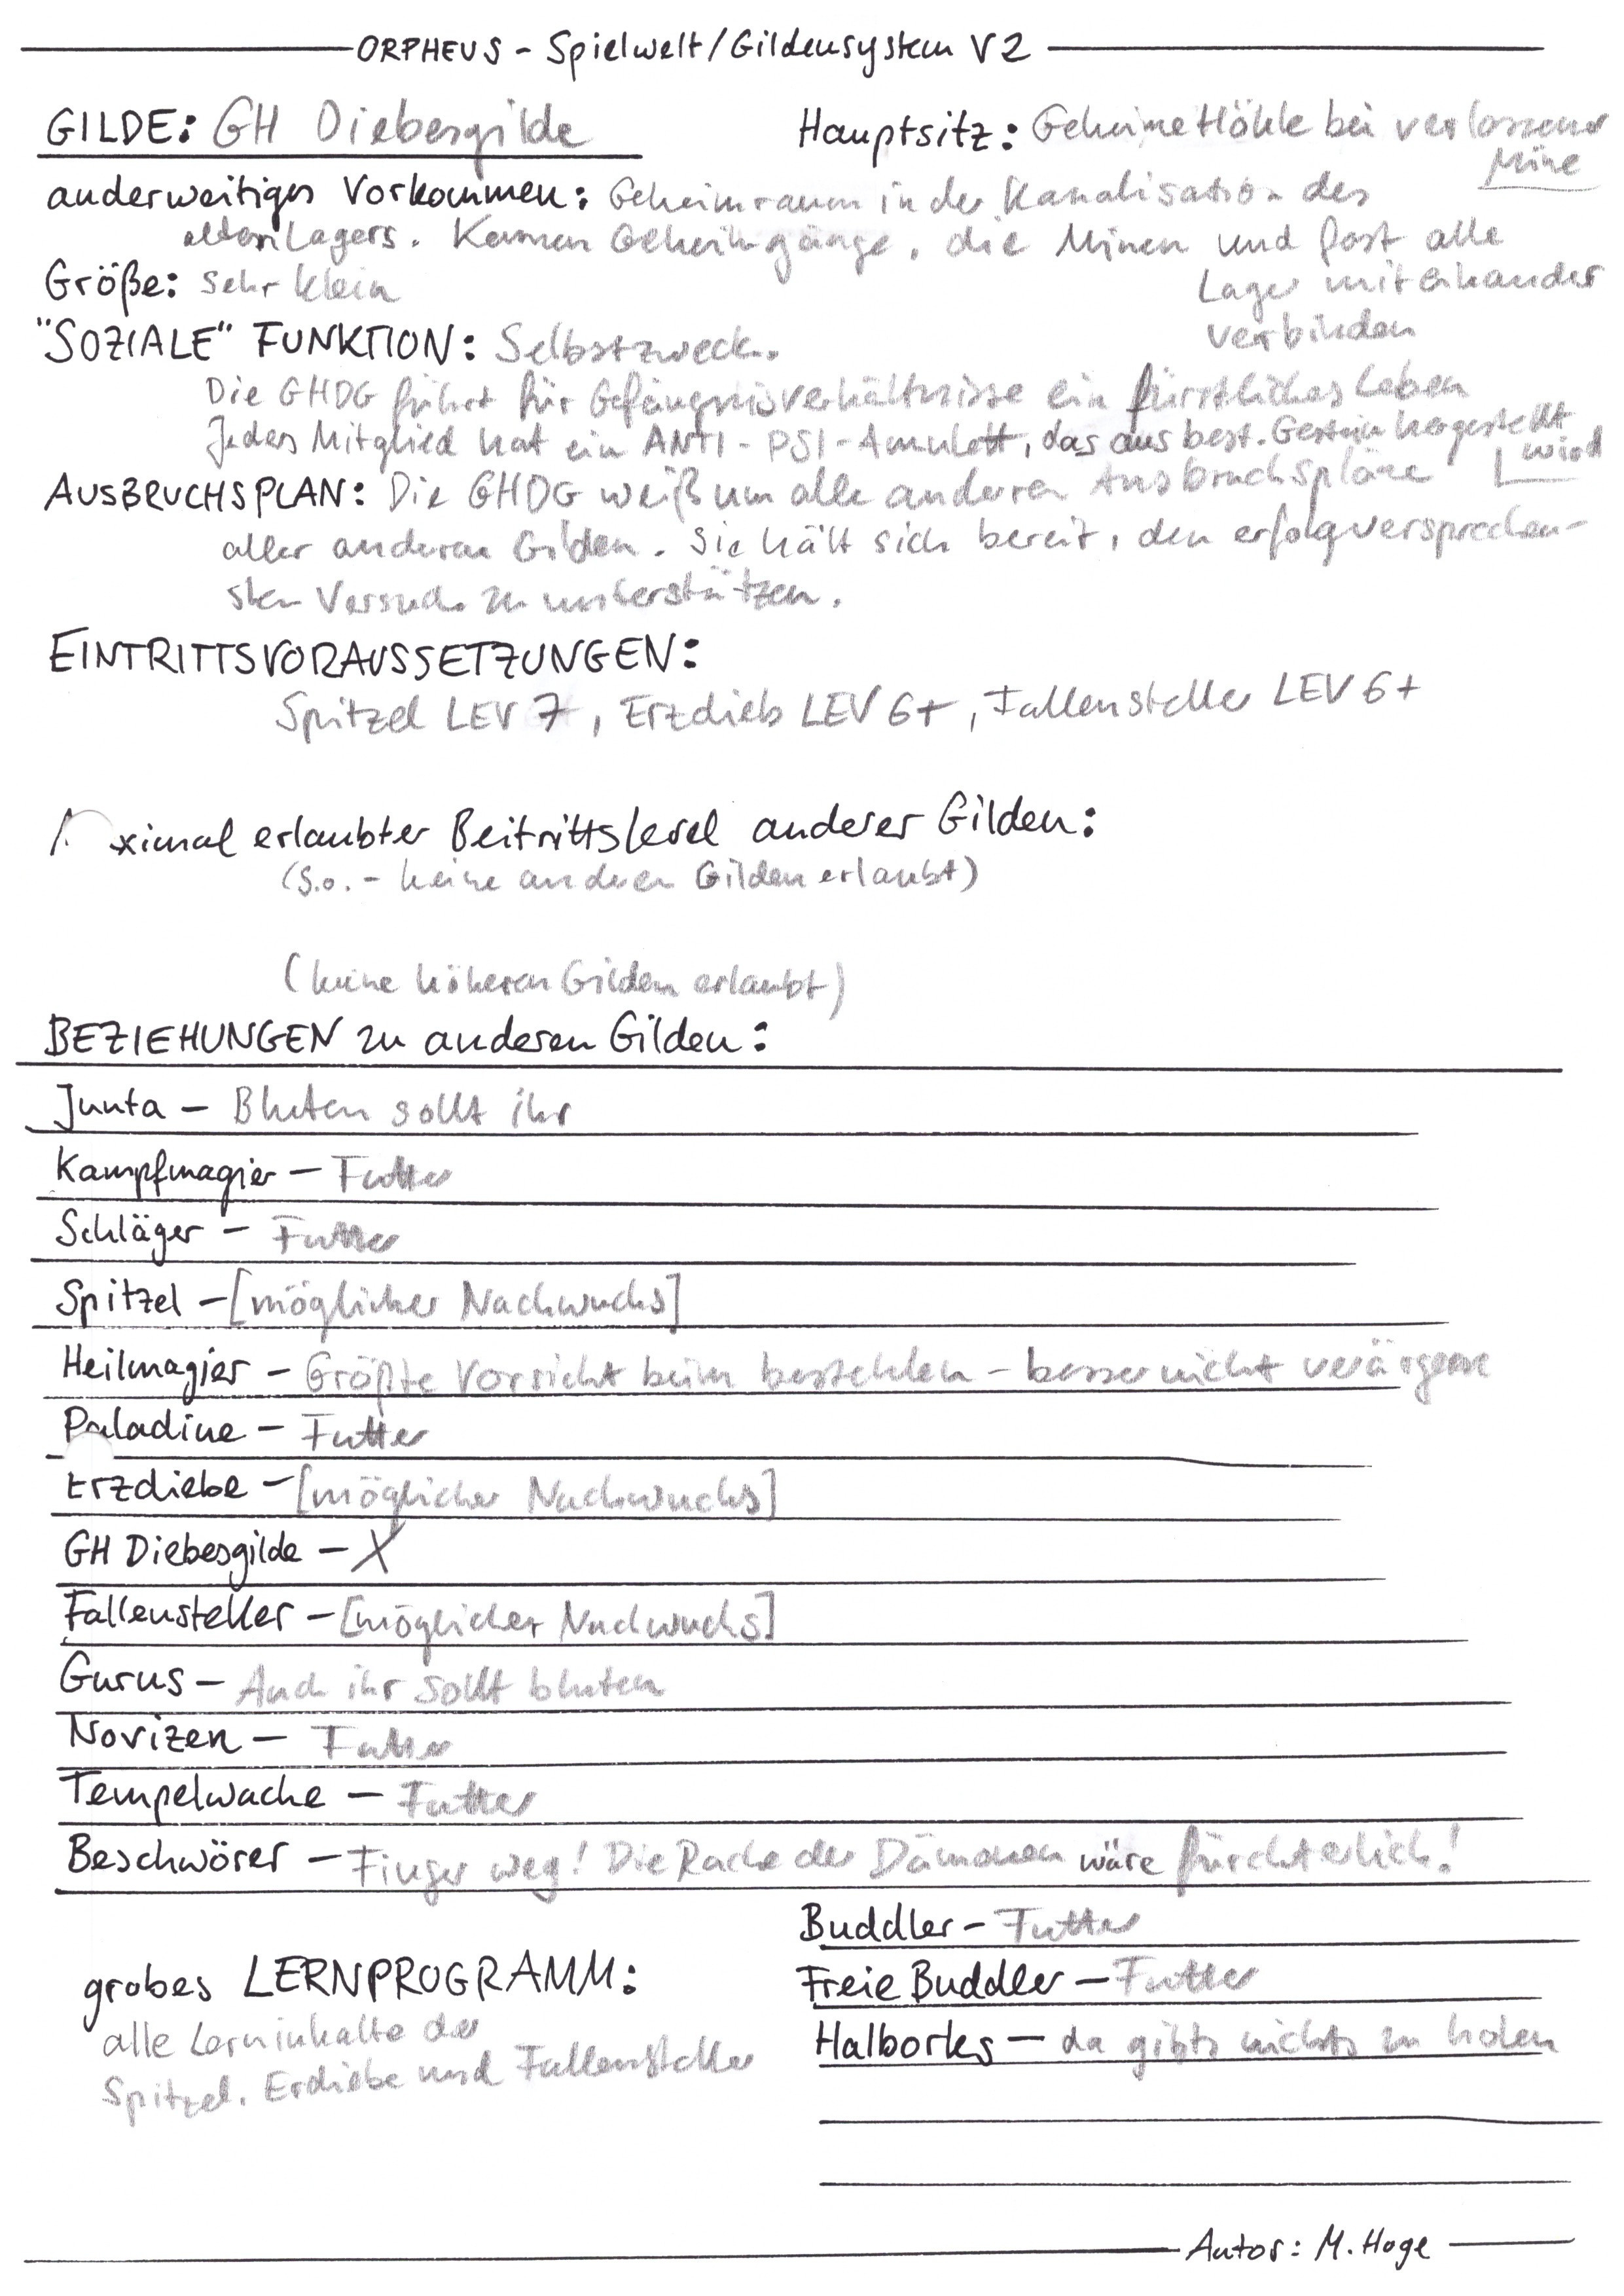 ORPHEUS - Spielwelt/Gildensystem V2
GILDE: GH Diebesgilde
Hauptsitz: Geheime Höhle bei verlassener
Mine
anderweitiges Vorkommen: Geheimraum in der Kanalisation des
alten Lagers. Kennen Geheimgänge, die Minen und fast alle
Lager miteinander
verbinden
Größe: sehr klein
"SOZIALE" FUNKTION: Selbstzweck.
Die GHDG führt für Gefängnisverhältnisse ein fürstliches Leben
Jedes Mitglied hat ein ANTI-PSI-Amulett, das aus best. Gestein hergestellt
wird
AUSBRUCHSPLAN: Die GHDG weiß um alle anderen Ausbruchspläne
aller anderen Gilden. Sie hält sich bereit, den erfolgversprechen-
sten Versuch zu unterstützen.
EINTRITTSVORAUSSETZUNGEN:
Spitzel LEV 7, Erzdieb LEV 6+, Fallensteller LEV 6+
ximal erlaubter Beitrittslevel anderer Gilden:
(s.o. - keine anderen Gilden erlaubt)
(keine höheren Gilden erlaubt)
BEZIEHUNGEN zu anderen Gilden:
Junta - Bluten sollt ihr
Kampfmagier - Futter
Schläger - Futter
Spitzel - [möglicher Nachwuchs]
Heilmagier - Größte Vorsicht beim bestehlen - besser nicht verärgern
Paladine - Futter
Erzdiebe - [möglicher Nachwuchs]
GH Diebesgilde - X
Fallensteller - [möglicher Nachwuchs]
Gurus - Auch ihr sollt bluten
Novizen - Futter
Tempelwache - Futter
Beschwörer - Finger weg! Die Rache der Dämonen wäre fürchterlich!
Buddler - Futter
Freie Buddler - Futter
Halborks - da gibts nichts zu holen
grobes LERNPROGRAMM:
alle Lerninhalte der
Spitzel, Erdiebe und Fallensteller
Autor: M. Hoge